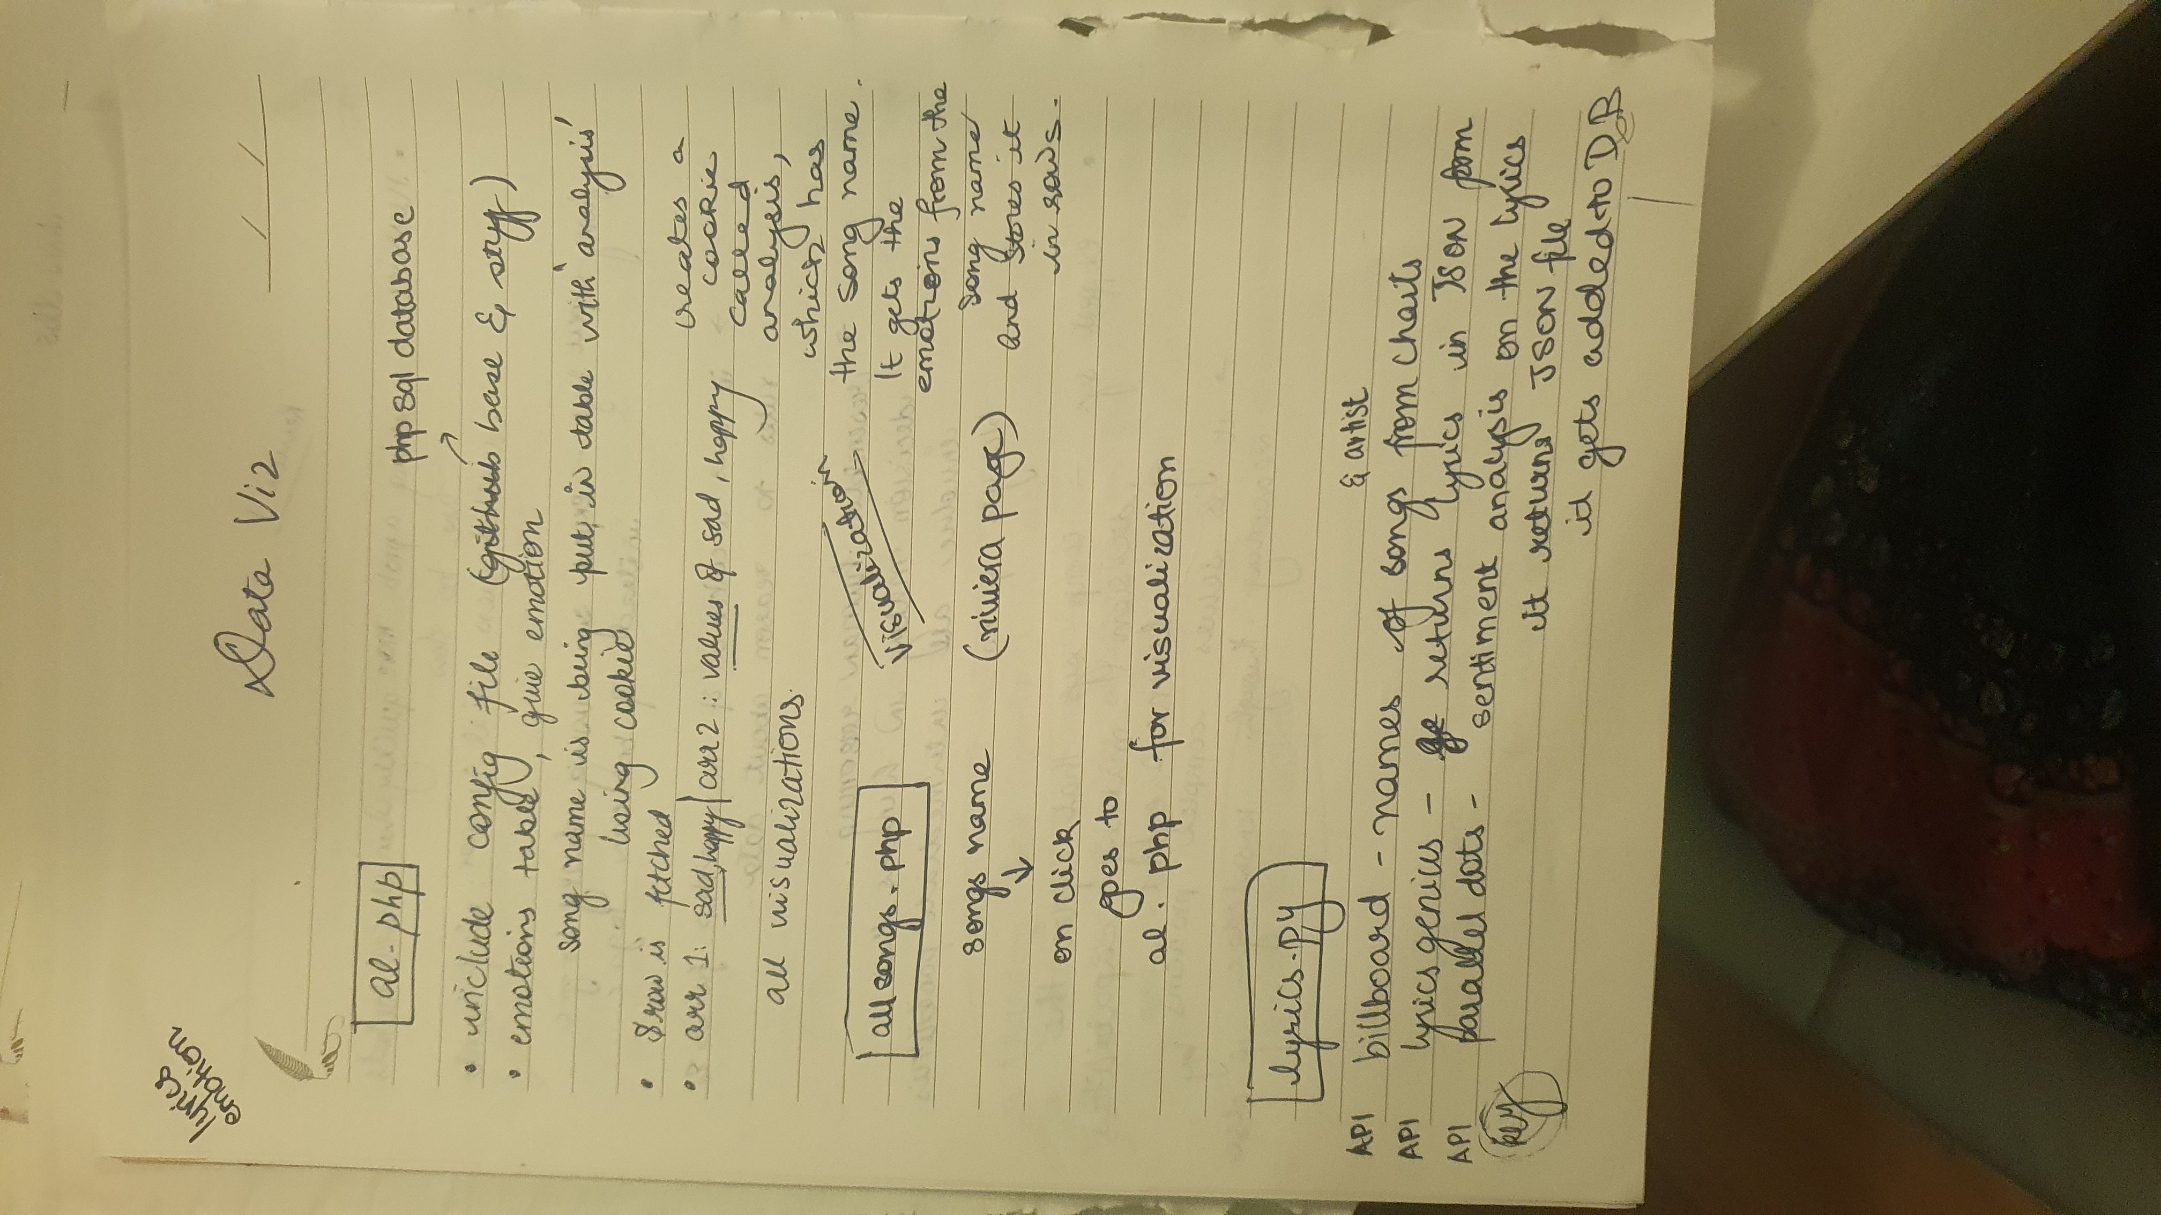 lyrics
emotion
Data Viz
al.php
php sql database
• include config file (github base & stuff)
• emotions table, give emotion
song name is being put in table with 'analysis'
using cookie
• $row is fetched
• arr 1: sad, happy | arr 2 : values of sad, happy
all visualizations.
creates a
cookie
called
analysis,
which has
the song name.
It gets the
emotions from the
song name
and stores it
in rows.
allsongs.php
visualization
songs name (riviera page)
↓
on click
goes to
al.php for visualization
lyrics.py
& artist
API billboard - names of songs from charts
API lyrics genius - ge returns lyrics in JSON from
API parallel dots - sentiment analysis on the lyrics
key
it returns JSON file
it gets added to DB